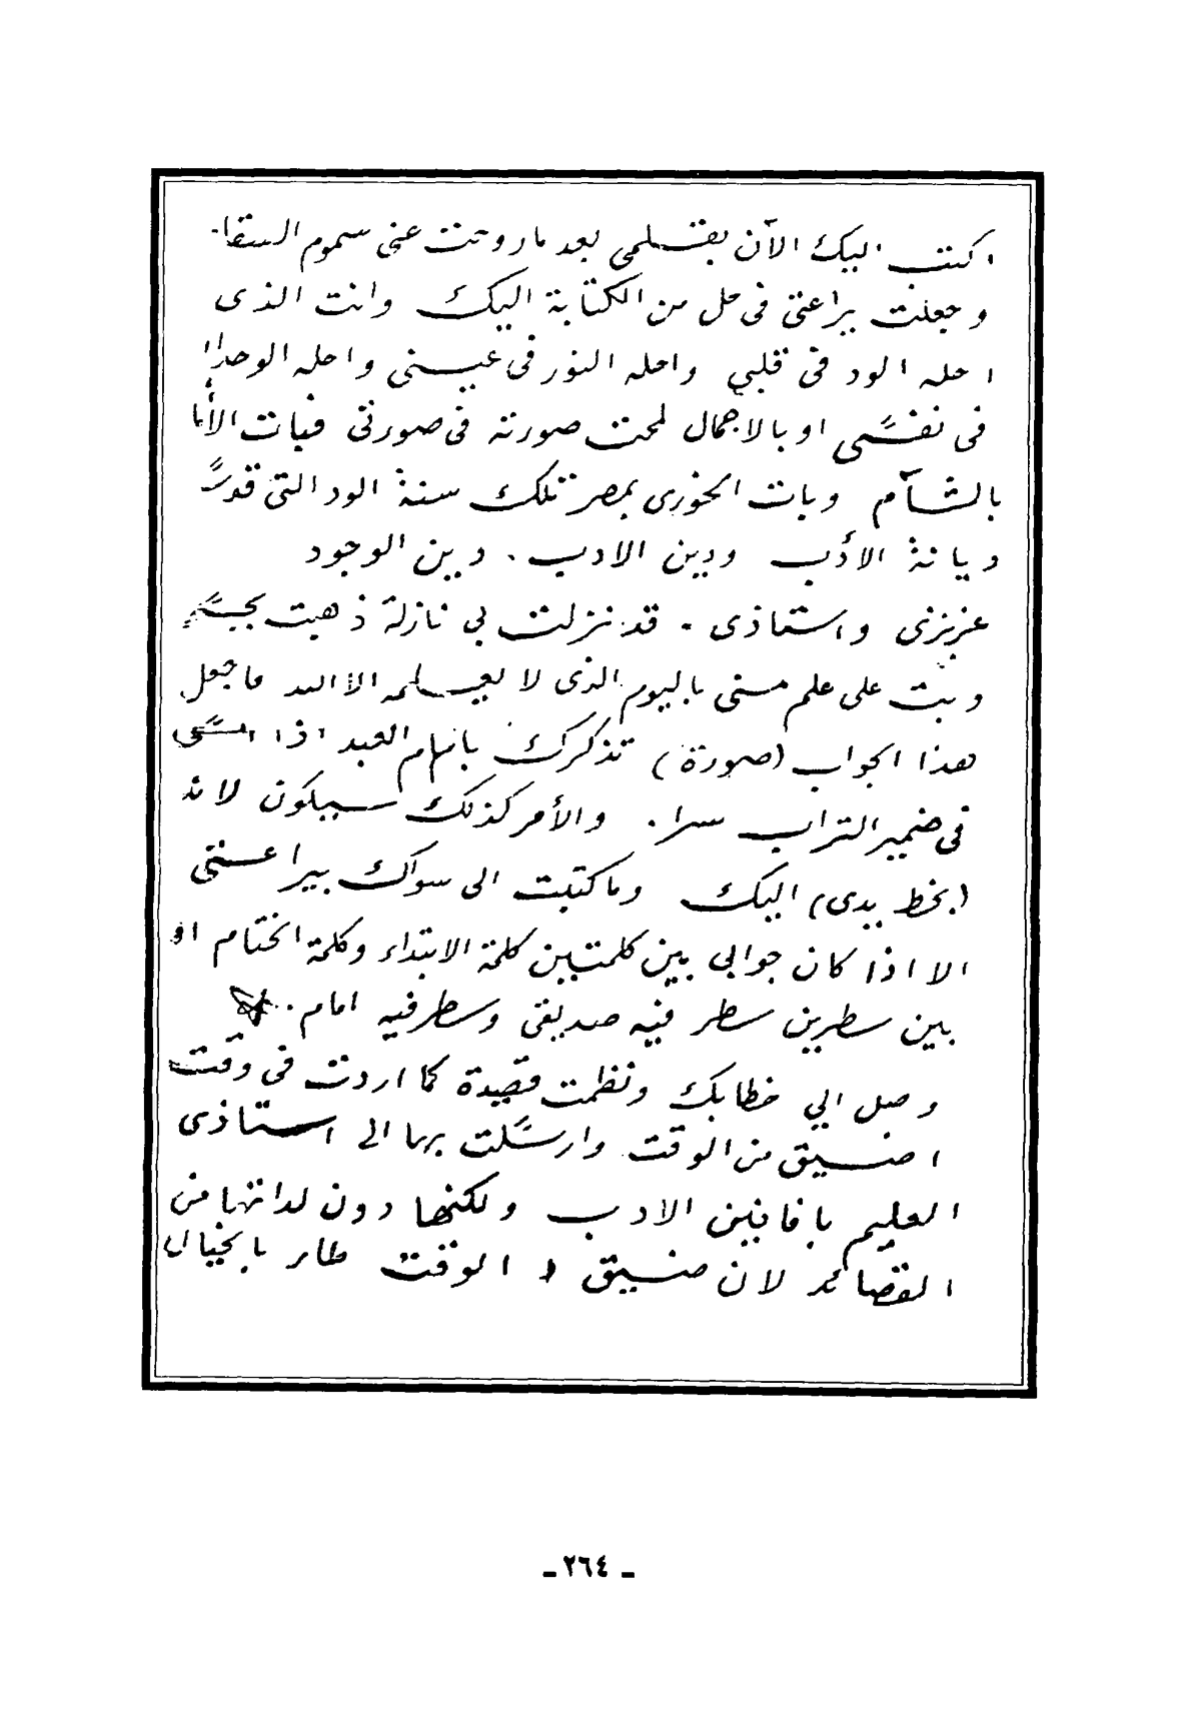 اكتب اليك الآن بقلمي بعد ما روحت عني سموم السقا
وجعلت يراعتي في حل من الكتابة اليك وانت الذى
احله الود في قلبي واحله النور في عيني واحله الوحدا
في نفسي او بالاجمال لمحت صورته في صورتي فبات الأنا
بالشآم وبات الخورى بمصر تلك سنة الود التي قدسً
ديانة الأدب ودين الادب . دين الوجود
عزيزى واستاذى . قد نزلت بي نازلة ذهبت بجسم
وبت على علم منى باليوم الذى لا يعلمه الا الله ما جعل
هذا الجواب (صورة) تذكرك بابراهام العبد اذا امسى
في ضمير التراب سرا . والأمر كذلك سيكون لانه
(بخط يدى) اليك وما كتبت الى سواك بيراعتى
الا اذا كان جوابي بين كلمتين كلمة الابتداء وكلمة الختام او
بين سطرين سطر فيه صديقى وسطر فيه امام ..
وصل الي خطابك ونظمت قصيدة كما اردت في وقت
اضيق من الوقت وارسلت بها الى استاذى
العليم بافانين الادب ولكنها دون لداتها من
القصائد لان ضيق الوقت طار بالخيال
ـ ٢٦٤ ـ